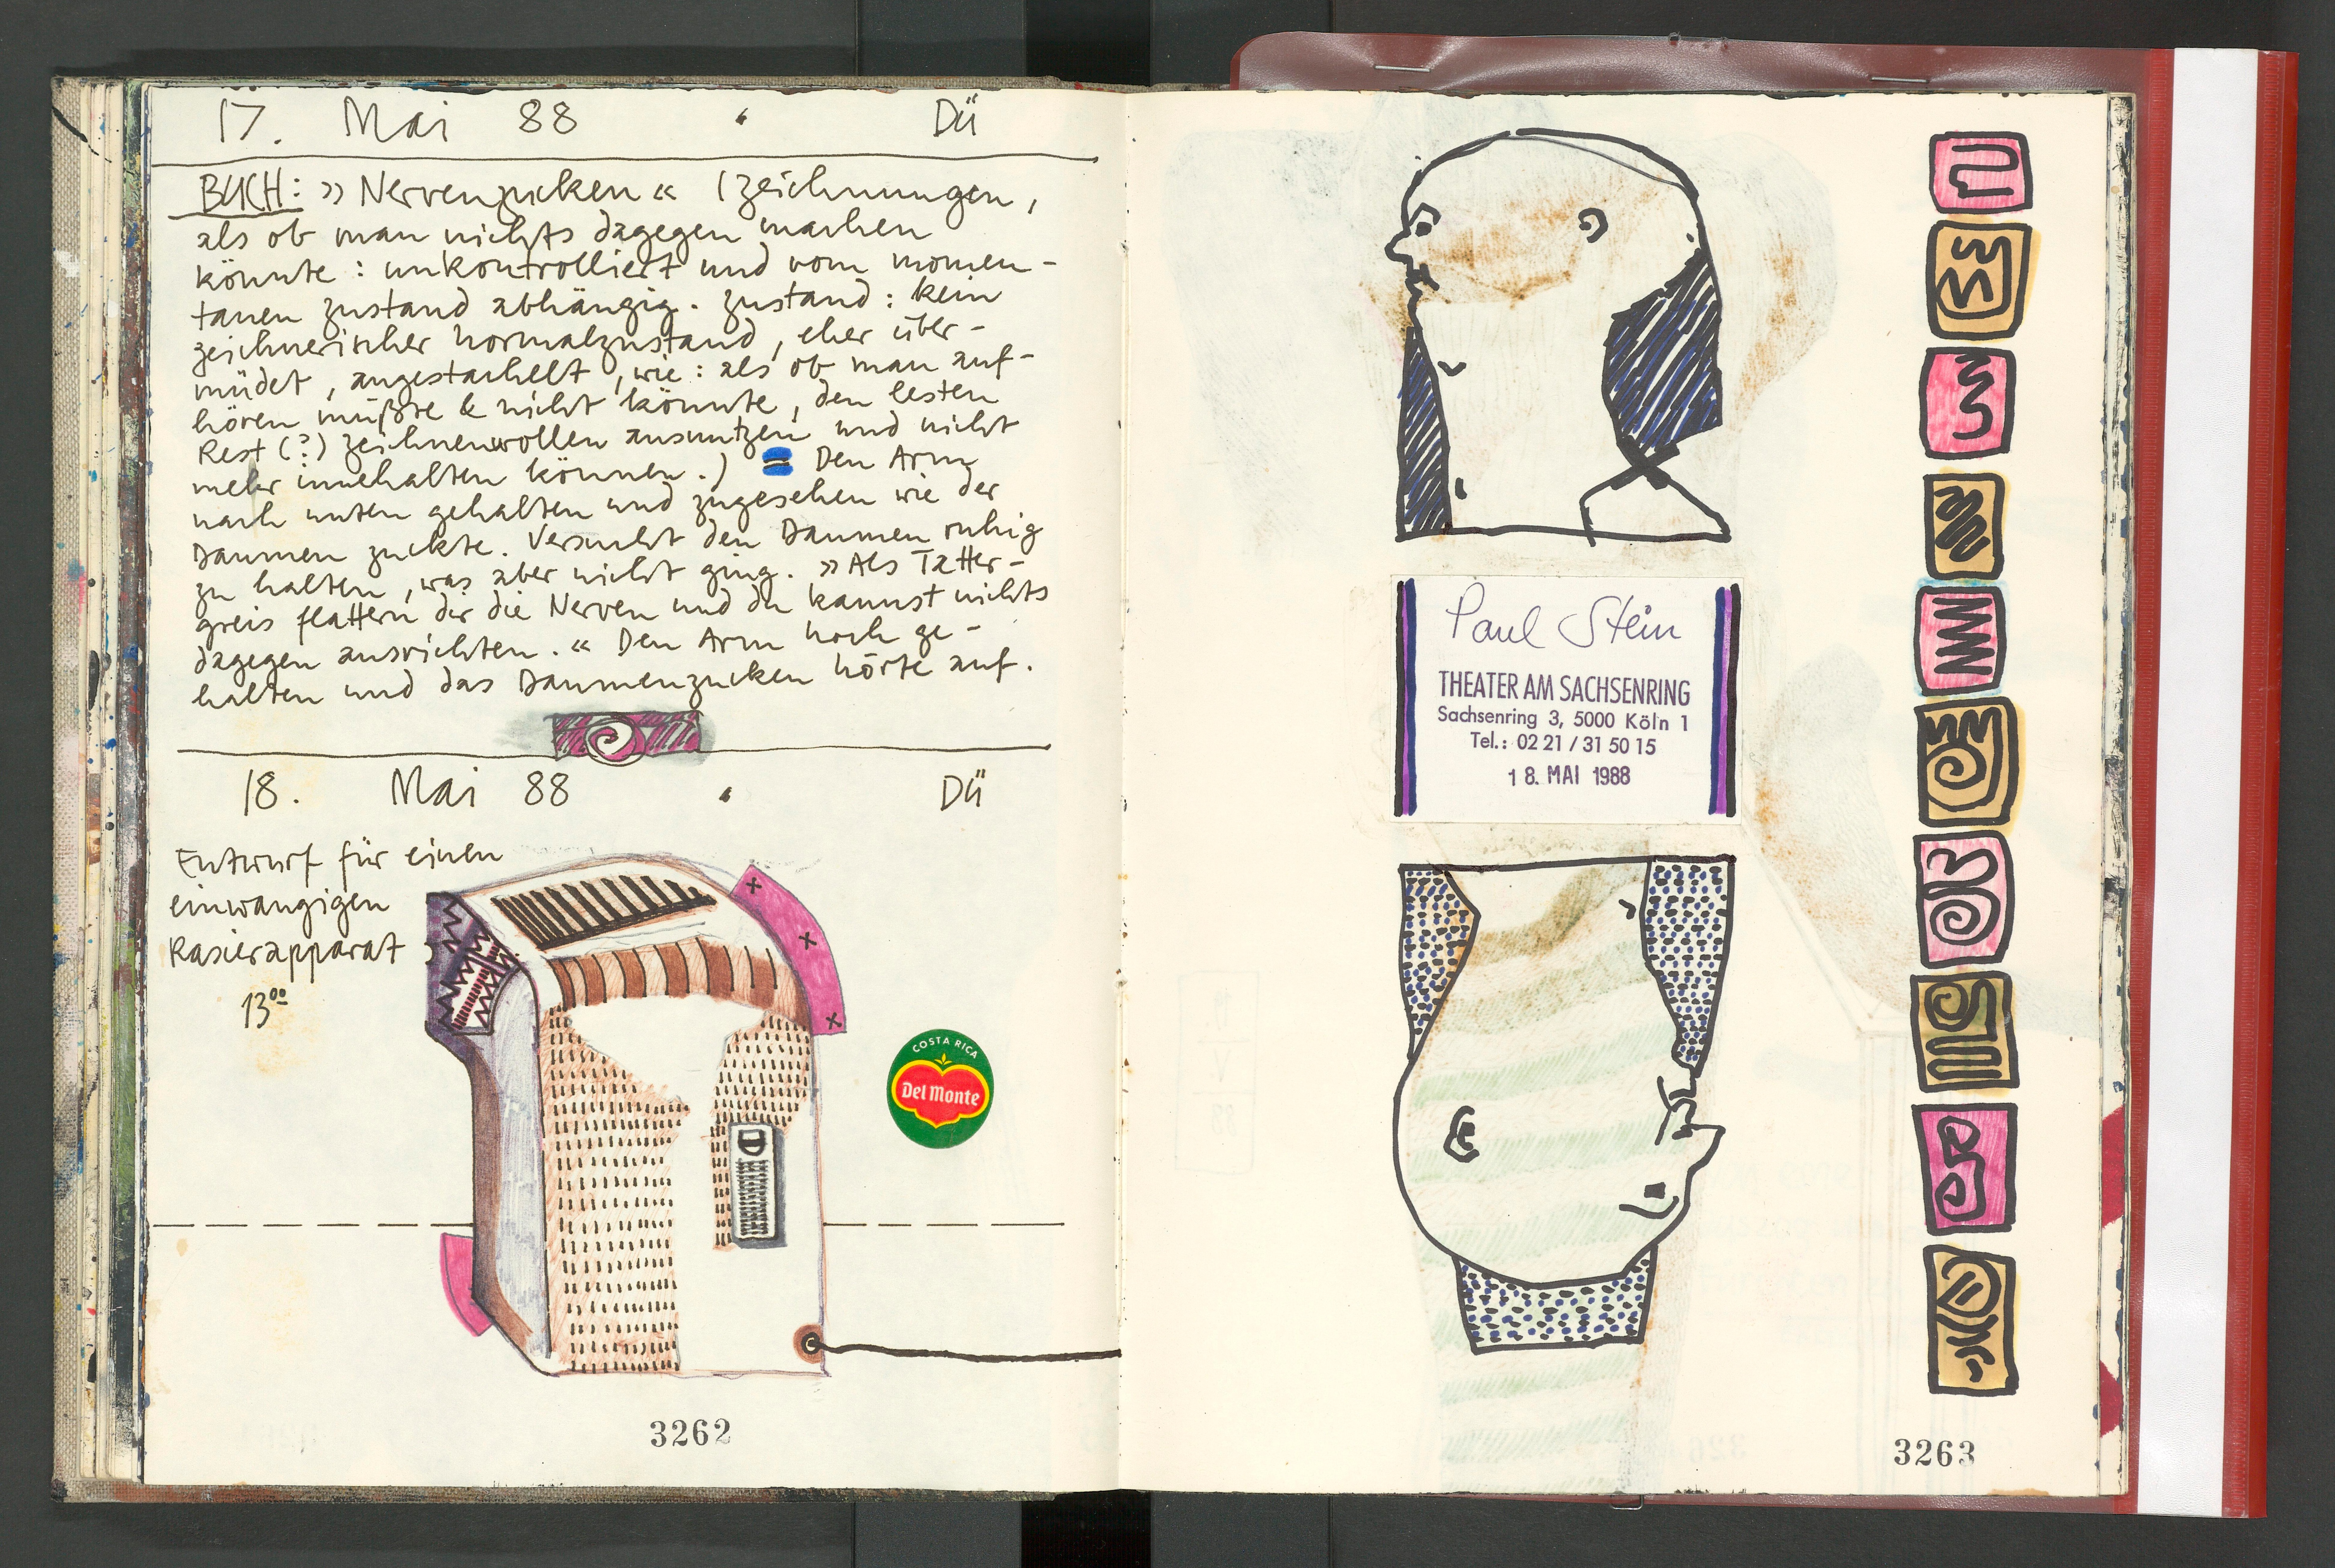 17. Mai 88 • Dü
BUCH: »Nervenzucken« (zeichnungen,
als ob man nichts dagegen machen
könnte: unkontrolliert und vom momen-
tanen zustand abhängig. zustand: kein
zeichnerischer normalzustand, eher über-
müdet, angestachelt, wie: als ob man auf-
hören müßte & nicht könnte, den lesten
Rest (?) zeichnenwollen ausnutzen und nicht
mehr innehalten können.) = Den Arm
nach unten gehalten und zugesehen wie der
Daumen zuckte. Versucht den Daumen ruhig
zu halten, was aber nicht ging. »Als Tatter-
greis flattern dir die Nerven und du kannst nichts
dagegen ausrichten.« Den Arm hoch ge-
halten und das Daumenzucken hörte auf.
18. Mai 88 • Dü
Entwurf für einen
einwangigen
Rasierapparat
13⁰⁰
COSTA RICA
Del Monte
3262
Paul Stein
THEATER AM SACHSENRING
Sachsenring 3, 5000 Köln 1
Tel.: 02 21 / 31 50 15
18. MAI 1988
3263